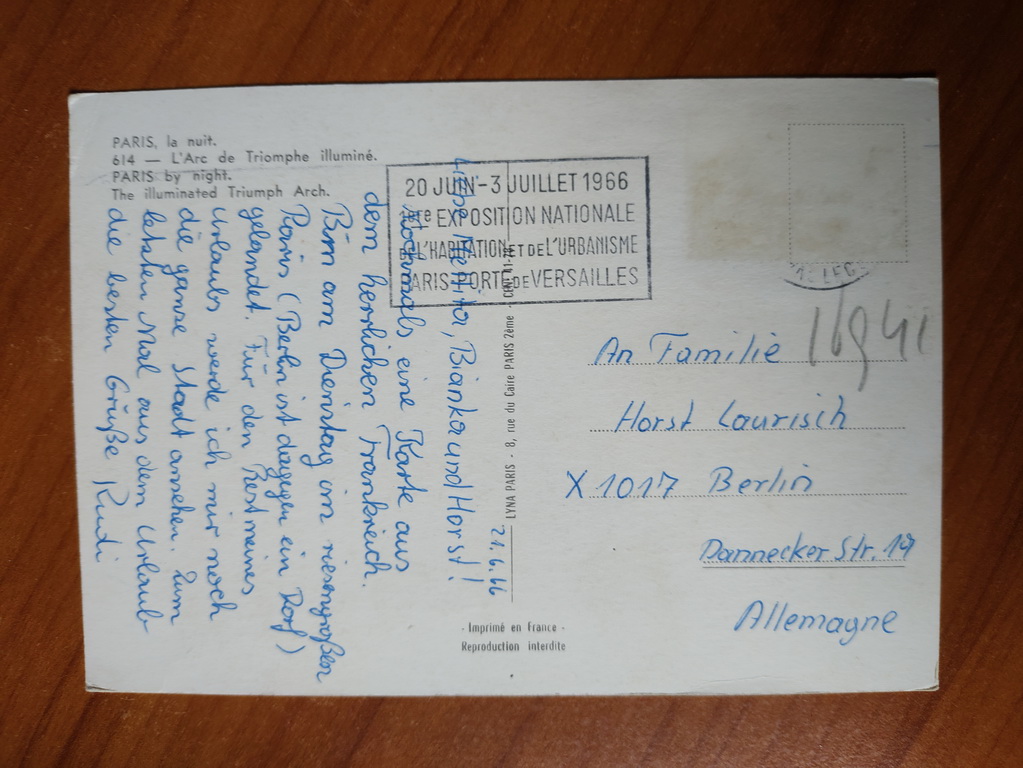 PARIS, la nuit.
614 — L'Arc de Triomphe illuminé.
PARIS by night.
The illuminated Triumph Arch.
20 JUIN-3 JUILLET 1966
1ère EXPOSITION NATIONALE
DE L'HABITATION ET DE L'URBANISME
PARIS-PORTE DE VERSAILLES
21.6.66
Bianka und Horst!
Nochmals eine Karte aus
dem herrlichen Frankreich.
Bin am Dienstag im riesengroßen
Paris (Berlin ist dagegen ein Dorf)
gelandet. Für den Rest meines
Urlaubs werde ich mir noch
die ganze Stadt ansehen. Zum
letzten Mal aus dem Urlaub
die besten Grüße Rudi
LYNA PARIS - 8, rue du Caire PARIS 2ème -
- Imprimé en France -
Reproduction interdite
An Familie
Horst Laurisch
X 1017 Berlin
Dannecker Str. 19
Allemagne